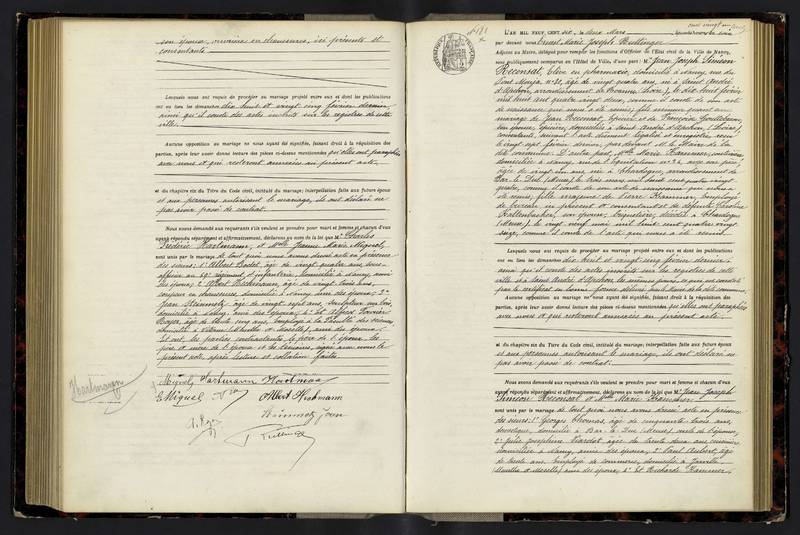 son épouse, ouvrière en chaussures, ici présents et
consentants
Lesquels nous ont requis de procéder au mariage projeté entre eux et dont les publications
ont eu lieu les dimanches dix huit et vingt cinq février dernier
ainsi qu'il conste des actes inscrits sur les registres de cette
ville.
Aucune opposition au mariage ne nous ayant été signifiée, faisant droit à la réquisition des
parties, après leur avoir donné lecture des pièces ci-dessus mentionnées qu'elles ont paraphées
avec nous et qui resteront annexées au présent acte
et du chapitre six du Titre du Code civil, intitulé du mariage; interpellation faite aux futurs époux
et aux personnes autorisant le mariage, ils ont déclaré ne
pas avoir passé de contrat.
Nous avons demandé aux requérants s'ils veulent se prendre pour mari et femme et chacun d'eux
ayant répondu séparément et affirmativement, déclarons au nom de la loi que Mr Charles
Frédéric Hartmann, et Mlle Jeanne Marie Miguel,
sont unis par le mariage de tout quoi nous avons dressé acte en présence
des sieurs: 1° Albert
âgé de vingt quatre ans, sous-
officier au 69e régiment d'infanterie, domicilié à Nancy, ami
Jean Steinmetz, âgé de vingt sept ans, sculpteur sur bois,
domicilié à Nancy, ami des époux; 4° et Alfred
âgé de trente cinq ans, employé à
(Meurthe et Moselle), ami des époux.
Et ont, les parties contractantes, le père de l'époux, les
père et mère de l'épouse et les témoins, signé avec nous le
présent acte, après lecture et collation faites.
Hartmann
Miguel Hartmann Hartmann
Miguel
Steinmetz Jean
N° 181
L'AN MIL NEUF CENT dix, le deux Mars
par devant nous Ernest Marie Joseph
Adjoint au Maire, délégué pour remplir les fonctions d'Officier de l'État civil de la Ville de Nancy,
sont publiquement comparus en l'Hôtel de Ville, d'une part: Mr Jean Joseph Siméon
Reconsat, élève en pharmacie, domicilié à Nancy, rue du
Pont Mouja, n° 31, âgé de vingt quatre ans, né à Saint André
d'Apchon, arrondissement de Roanne (Loire), le dix huit février
mil huit cent quatre vingt
comme il conste de son acte
de naissance qui nous a été remis, fils mineur quant au
mariage de Jean Reconsat, épicier et de Françoise
son épouse, épicière, domiciliés à Saint André d'Apchon, (Loire)
consentants, suivant l'acte dûment légalisé et enregistré reçu
le vingt sept février dernier, par devant Mr le Maire de la
dite commune. D'autre part, Mlle Marie Krammer, couturière
domiciliée à Nancy, rue de l'Équitation n° 24, avec son père,
âgée de vingt cinq ans, née à Chardogne, arrondissement de
Bar-le-Duc (Meuse), le trois mars mil huit cent quatre vingt
quatre, comme il conste de son acte de naissance qui nous a
été remis, fille majeure de Pierre Krammer, employé
de bureau ici présent et consentant et de défunte Caroline
Kaltenbacher, son épouse, décédée à Chardogne
(Meuse), le vingt neuf mai mil huit cent quatre vingt
comme il conste de l'acte qui nous a été remis.
Lesquels nous ont requis de procéder au mariage projeté entre eux et dont les publications
ont eu lieu les dimanches dix huit et vingt cinq février dernier,
ainsi qu'il conste des actes inscrits sur les registres de cette
ville et à Saint André d'Apchon, les mêmes jours, ce qui est constaté
par le certificat en bonne forme délivré par le Maire de la dite commune.
Aucune opposition au mariage ne nous ayant été signifiée, faisant droit à la réquisition des
parties, après leur avoir donné lecture des pièces ci-dessus mentionnées qu'elles ont paraphées
avec nous et qui resteront annexées au présent acte.
et du chapitre six du Titre du Code civil, intitulé du mariage; interpellation faite aux futurs époux
et aux personnes autorisant le mariage, ils ont déclaré ne
pas avoir passé de contrat.
Nous avons demandé aux requérants s'ils veulent se prendre pour mari et femme et chacun d'eux
ayant répondu séparément et affirmativement, déclarons au nom de la loi que Mr Jean Joseph
Siméon Reconsat et Mlle Marie Krammer
sont unis par le mariage de tout quoi nous avons dressé acte en présence
des sieurs: 1° Georges Thomas, âgé de cinquante trois ans,
domicilié à Bar-le-Duc (Meuse), oncle de l'épouse;
2° Julie Joséphine
âgée de trente deux ans, cuisinière
domiciliée à Nancy, amie des époux; 3° Paul Aubert, âgé
de trente ans, employé de commerce, domicilié à Jarville
(Meurthe et Moselle) ami des époux; 4° Et Richarde Krammer,